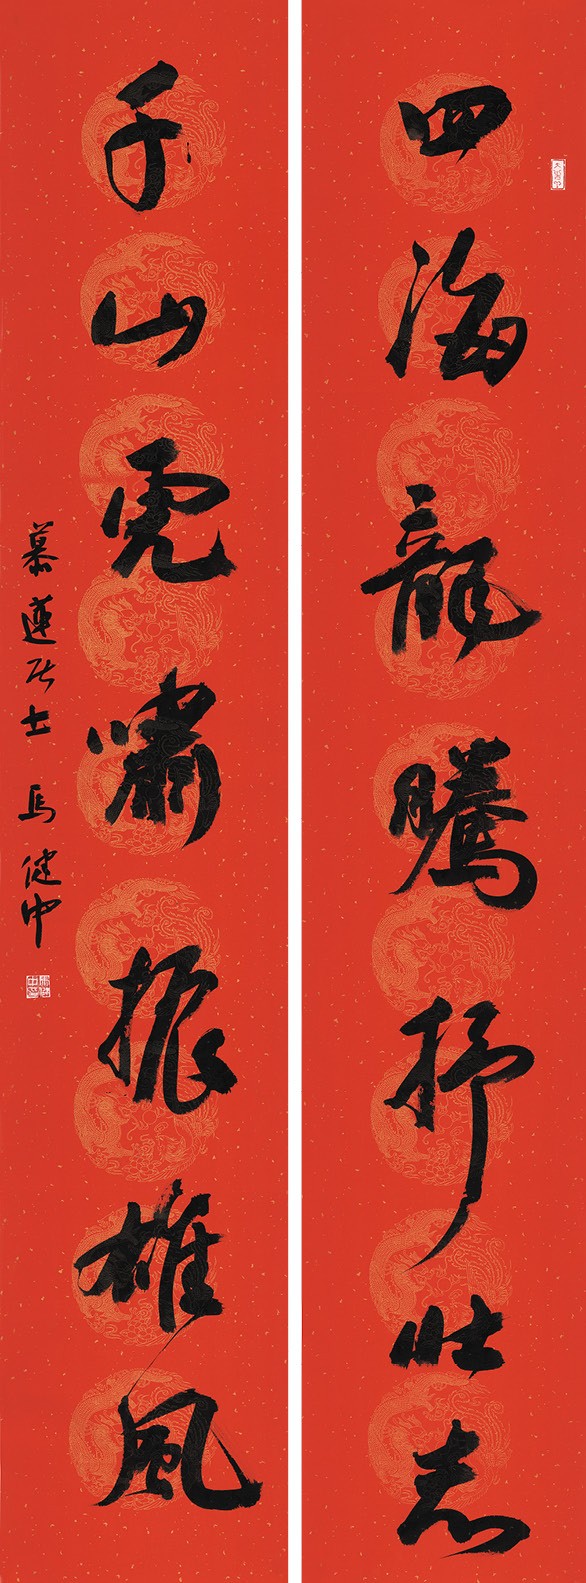 四海龍騰抒壯志
千山虎嘯振雄風
慕蓮居士 馬健中